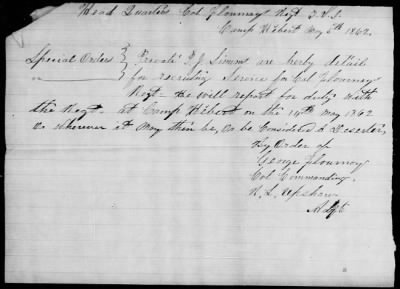 Head Quarters Col Flournoy Regt T.V.I.
Camp Hebert May 5th 1862.
Special Orders } Private P. J. Simms are herby detail
for recruiting Service for Col Flournoy
Regt - He will report for duty with
the Regt - at Camp Hebert on the 14th May 1862
or wherever it may then be, or be Considered a Deserter,
By Order of
George Flournoy
Col Commanding.
N. L. Upshaw
Adjt